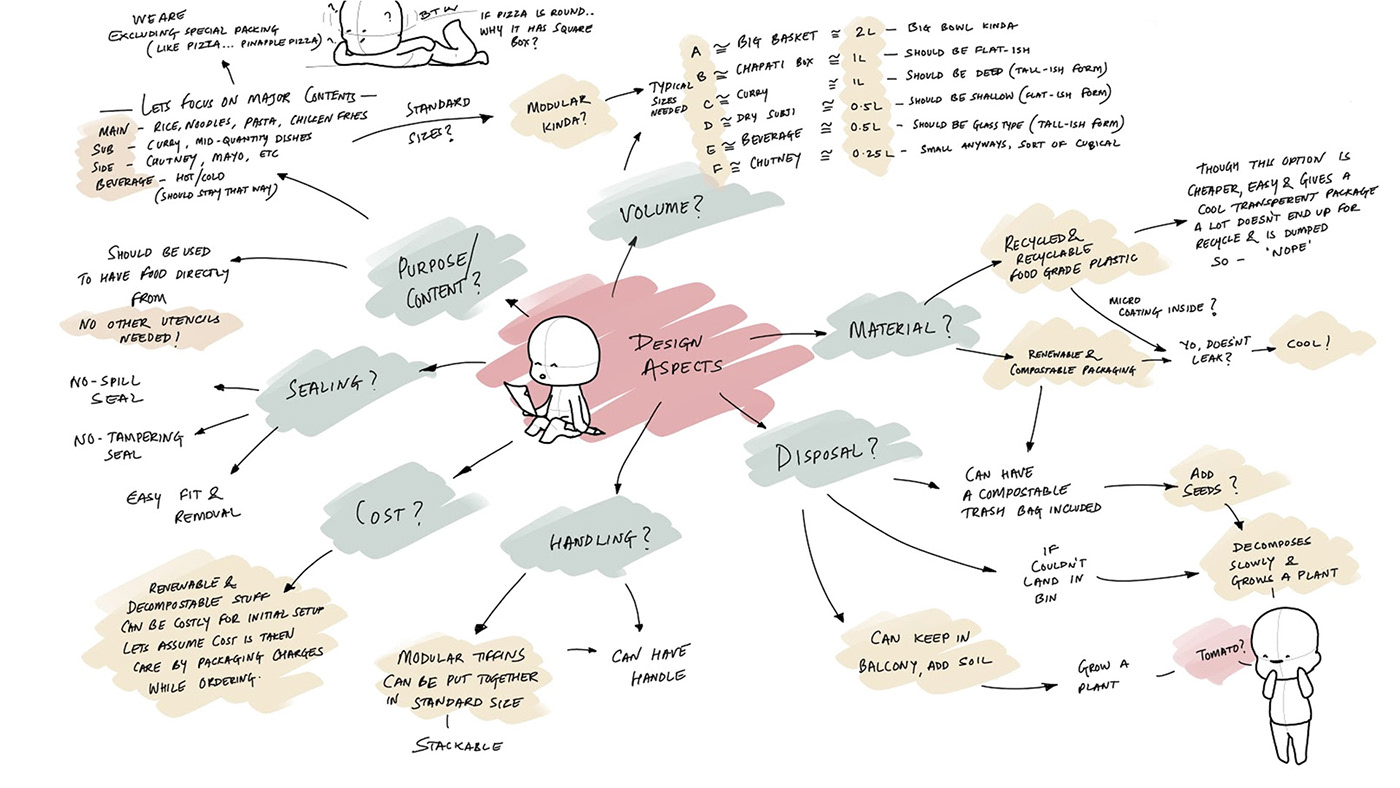 WE ARE
EXCLUDING SPECIAL PACKING
(LIKE PIZZA... PINAPPLE PIZZA)
?
?
?
BTW
IF PIZZA IS ROUND..
WHY IT HAS SQUARE
BOX?
LETS FOCUS ON MAJOR CONTENTS
MAIN - RICE, NOODLES, PASTA, CHICKEN FRIES
SUB - CURRY, MID-QUANTITY DISHES
SIDE - CHUTNEY, MAYO, ETC
BEVERAGE - HOT/COLD
(SHOULD STAY THAT WAY)
STANDARD
SIZES?
MODULAR
KINDA?
TYPICAL
SIZES
NEEDED
A ≅ BIG BASKET ≅ 2L - BIG BOWL KINDA
B ≅ CHAPATI BOX ≅ 1L - SHOULD BE FLAT-ISH
C ≅ CURRY ≅ 1L - SHOULD BE DEEP (TALL-ISH FORM)
D ≅ DRY SUBJI ≅ 0.5L - SHOULD BE SHALLOW (FLAT-ISH FORM)
E ≅ BEVERAGE ≅ 0.5L - SHOULD BE GLASS TYPE (TALL-ISH FORM)
F ≅ CHUTNEY ≅ 0.25L - SMALL ANYWAYS, SORT OF CUBICAL
VOLUME?
PURPOSE/
CONTENT?
SHOULD BE USED
TO HAVE FOOD DIRECTLY
FROM
NO OTHER UTENCILS
NEEDED!
DESIGN
ASPECTS
SEALING?
NO-SPILL
SEAL
NO-TAMPERING
SEAL
EASY FIT &
REMOVAL
COST?
RENEWABLE &
DECOMPOSTABLE STUFF
CAN BE COSTLY FOR INITIAL SETUP
LETS ASSUME COST IS TAKEN
CARE BY PACKAGING CHARGES
WHILE ORDERING.
HANDLING?
MODULAR TIFFINS
CAN BE PUT TOGETHER
IN STANDARD SIZE
STACKABLE
CAN HAVE
HANDLE
MATERIAL?
RECYCLED &
RECYCLABLE
FOOD GRADE PLASTIC
THOUGH THIS OPTION IS
CHEAPER, EASY & GIVES A
COOL TRANSPERENT PACKAGE
A LOT DOESN'T END UP FOR
RECYCLE & IS DUMPED
SO - 'NOPE'
MICRO
COATING INSIDE?
RENEWABLE &
COMPOSTABLE PACKAGING
YO, DOESN'T
LEAK?
COOL!
DISPOSAL?
CAN HAVE
A COMPOSTABLE
TRASH BAG INCLUDED
ADD
SEEDS?
IF
COULDN'T
LAND IN
BIN
DECOMPOSES
SLOWLY &
GROWS A PLANT
CAN KEEP IN
BALCONY, ADD SOIL
GROW A
PLANT
TOMATO?